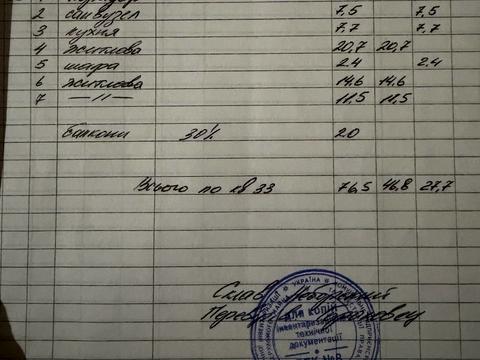 2 санвузел 7,5 7,5
3 кухня 7,7 7,7
4 житлова 20,7 20,7
5 шафа 2.4 2.4
6 житлова 14.6 14.6
7 —//— 11,5 11,5
балкони 30% 2.0
Всього по кв 33 76,5 46,8 27,7
Склав
УКРАЇНА
для копій
інвентаризаційної
технічної
документації